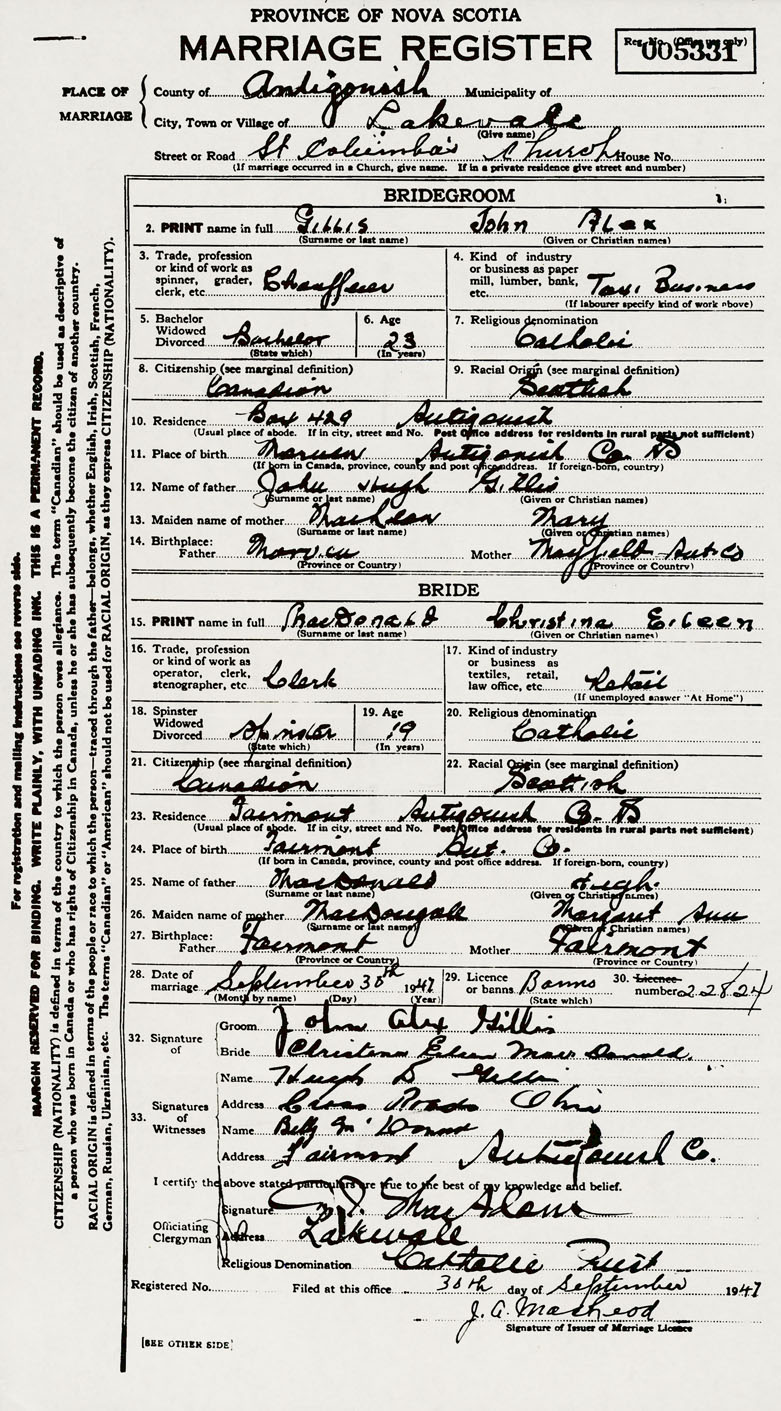 PROVINCE OF NOVA SCOTIA
MARRIAGE REGISTER
Reg. No. (Office use only)
005331
PLACE OF MARRIAGE
County of Antigonish Municipality of
City, Town or Village of Lakevale
(Give name)
Street or Road St Columba's Church House No.
(If marriage occurred in a Church, give name. If in a private residence give street and number)
BRIDEGROOM
2. PRINT name in full Gillis John Alex
(Surname or last name) (Given or Christian names)
3. Trade, profession or kind of work as spinner, grader, clerk, etc. Chauffeur
4. Kind of industry or business as paper mill, lumber, bank, etc. Taxi Business
(If labourer specify kind of work above)
5. Bachelor Widowed Divorced Bachelor
(State which)
6. Age 23
(In years)
7. Religious denomination Catholic
8. Citizenship (see marginal definition) Canadian
9. Racial Origin (see marginal definition) Scottish
10. Residence Box 429 Antigonish
(Usual place of abode. If in city, street and No. Post Office address for residents in rural parts not sufficient)
11. Place of birth Antigonish Co. NS
(If born in Canada, province, county and post office address. If foreign-born, country)
12. Name of father John Hugh Gillis
(Surname or last name) (Given or Christian names)
13. Maiden name of mother Mary
(Surname or last name) (Given or Christian names)
14. Birthplace: Father Mother Mayfield Ant Co
(Province or Country) (Province or Country)
BRIDE
15. PRINT name in full MacDonald Christina Eileen
(Surname or last name) (Given or Christian names)
16. Trade, profession or kind of work as operator, clerk, stenographer, etc. Clerk
17. Kind of industry or business as textiles, retail, law office, etc. Retail
(If unemployed answer "At Home")
18. Spinster Widowed Divorced Spinster
(State which)
19. Age 19
(In years)
20. Religious denomination Catholic
21. Citizenship (see marginal definition) Canadian
22. Racial Origin (see marginal definition) Scottish
23. Residence Fairmont Antigonish Co. NS
(Usual place of abode. If in city, street and No. Post Office address for residents in rural parts not sufficient)
24. Place of birth Fairmont Ant. Co.
(If born in Canada, province, county and post office address. If foreign-born, country)
25. Name of father MacDonald Hugh.
(Surname or last name) (Given or Christian names)
26. Maiden name of mother MacDougall Margaret Ann
(Surname or last name) (Given or Christian names)
27. Birthplace: Father Fairmont Mother Fairmont
(Province or Country) (Province or Country)
28. Date of marriage September 30th 1947
(Month by name) (Day) (Year)
29. Licence or banns Banns
(State which)
30. Licence number 22824
32. Signature of
Groom John Alex Gillis
Bride Christina Eileen MacDonald.
33. Signatures of Witnesses
Name Hugh D Gillis
Address Cross Roads Ohio
Name Betty
Address Fairmont Antigonish Co.
I certify the above stated particulars are true to the best of my knowledge and belief.
Officiating Clergyman
Signature MacAdam
Address Lakevale
Religious Denomination Catholic Priest
Registered No. Filed at this office 30th day of September 1947
J. A. MacLeod
Signature of Issuer of Marriage Licence
[SEE OTHER SIDE]
For registration and mailing instructions see reverse side.
MARGIN RESERVED FOR BINDING. WRITE PLAINLY, WITH UNFADING INK. THIS IS A PERMANENT RECORD.
CITIZENSHIP (NATIONALITY) is defined in terms of the country to which the person owes allegiance. The term "Canadian" should be used as descriptive of
a person who was born in Canada or who has rights of Citizenship in Canada, unless he or she has subsequently become the citizen of another country.
RACIAL ORIGIN is defined in terms of the people or race to which the person—traced through the father—belongs, whether English, Irish, Scottish, French,
German, Russian, Ukrainian, etc. The terms "Canadian" or "American" should not be used for RACIAL ORIGIN, as they express CITIZENSHIP (NATIONALITY).